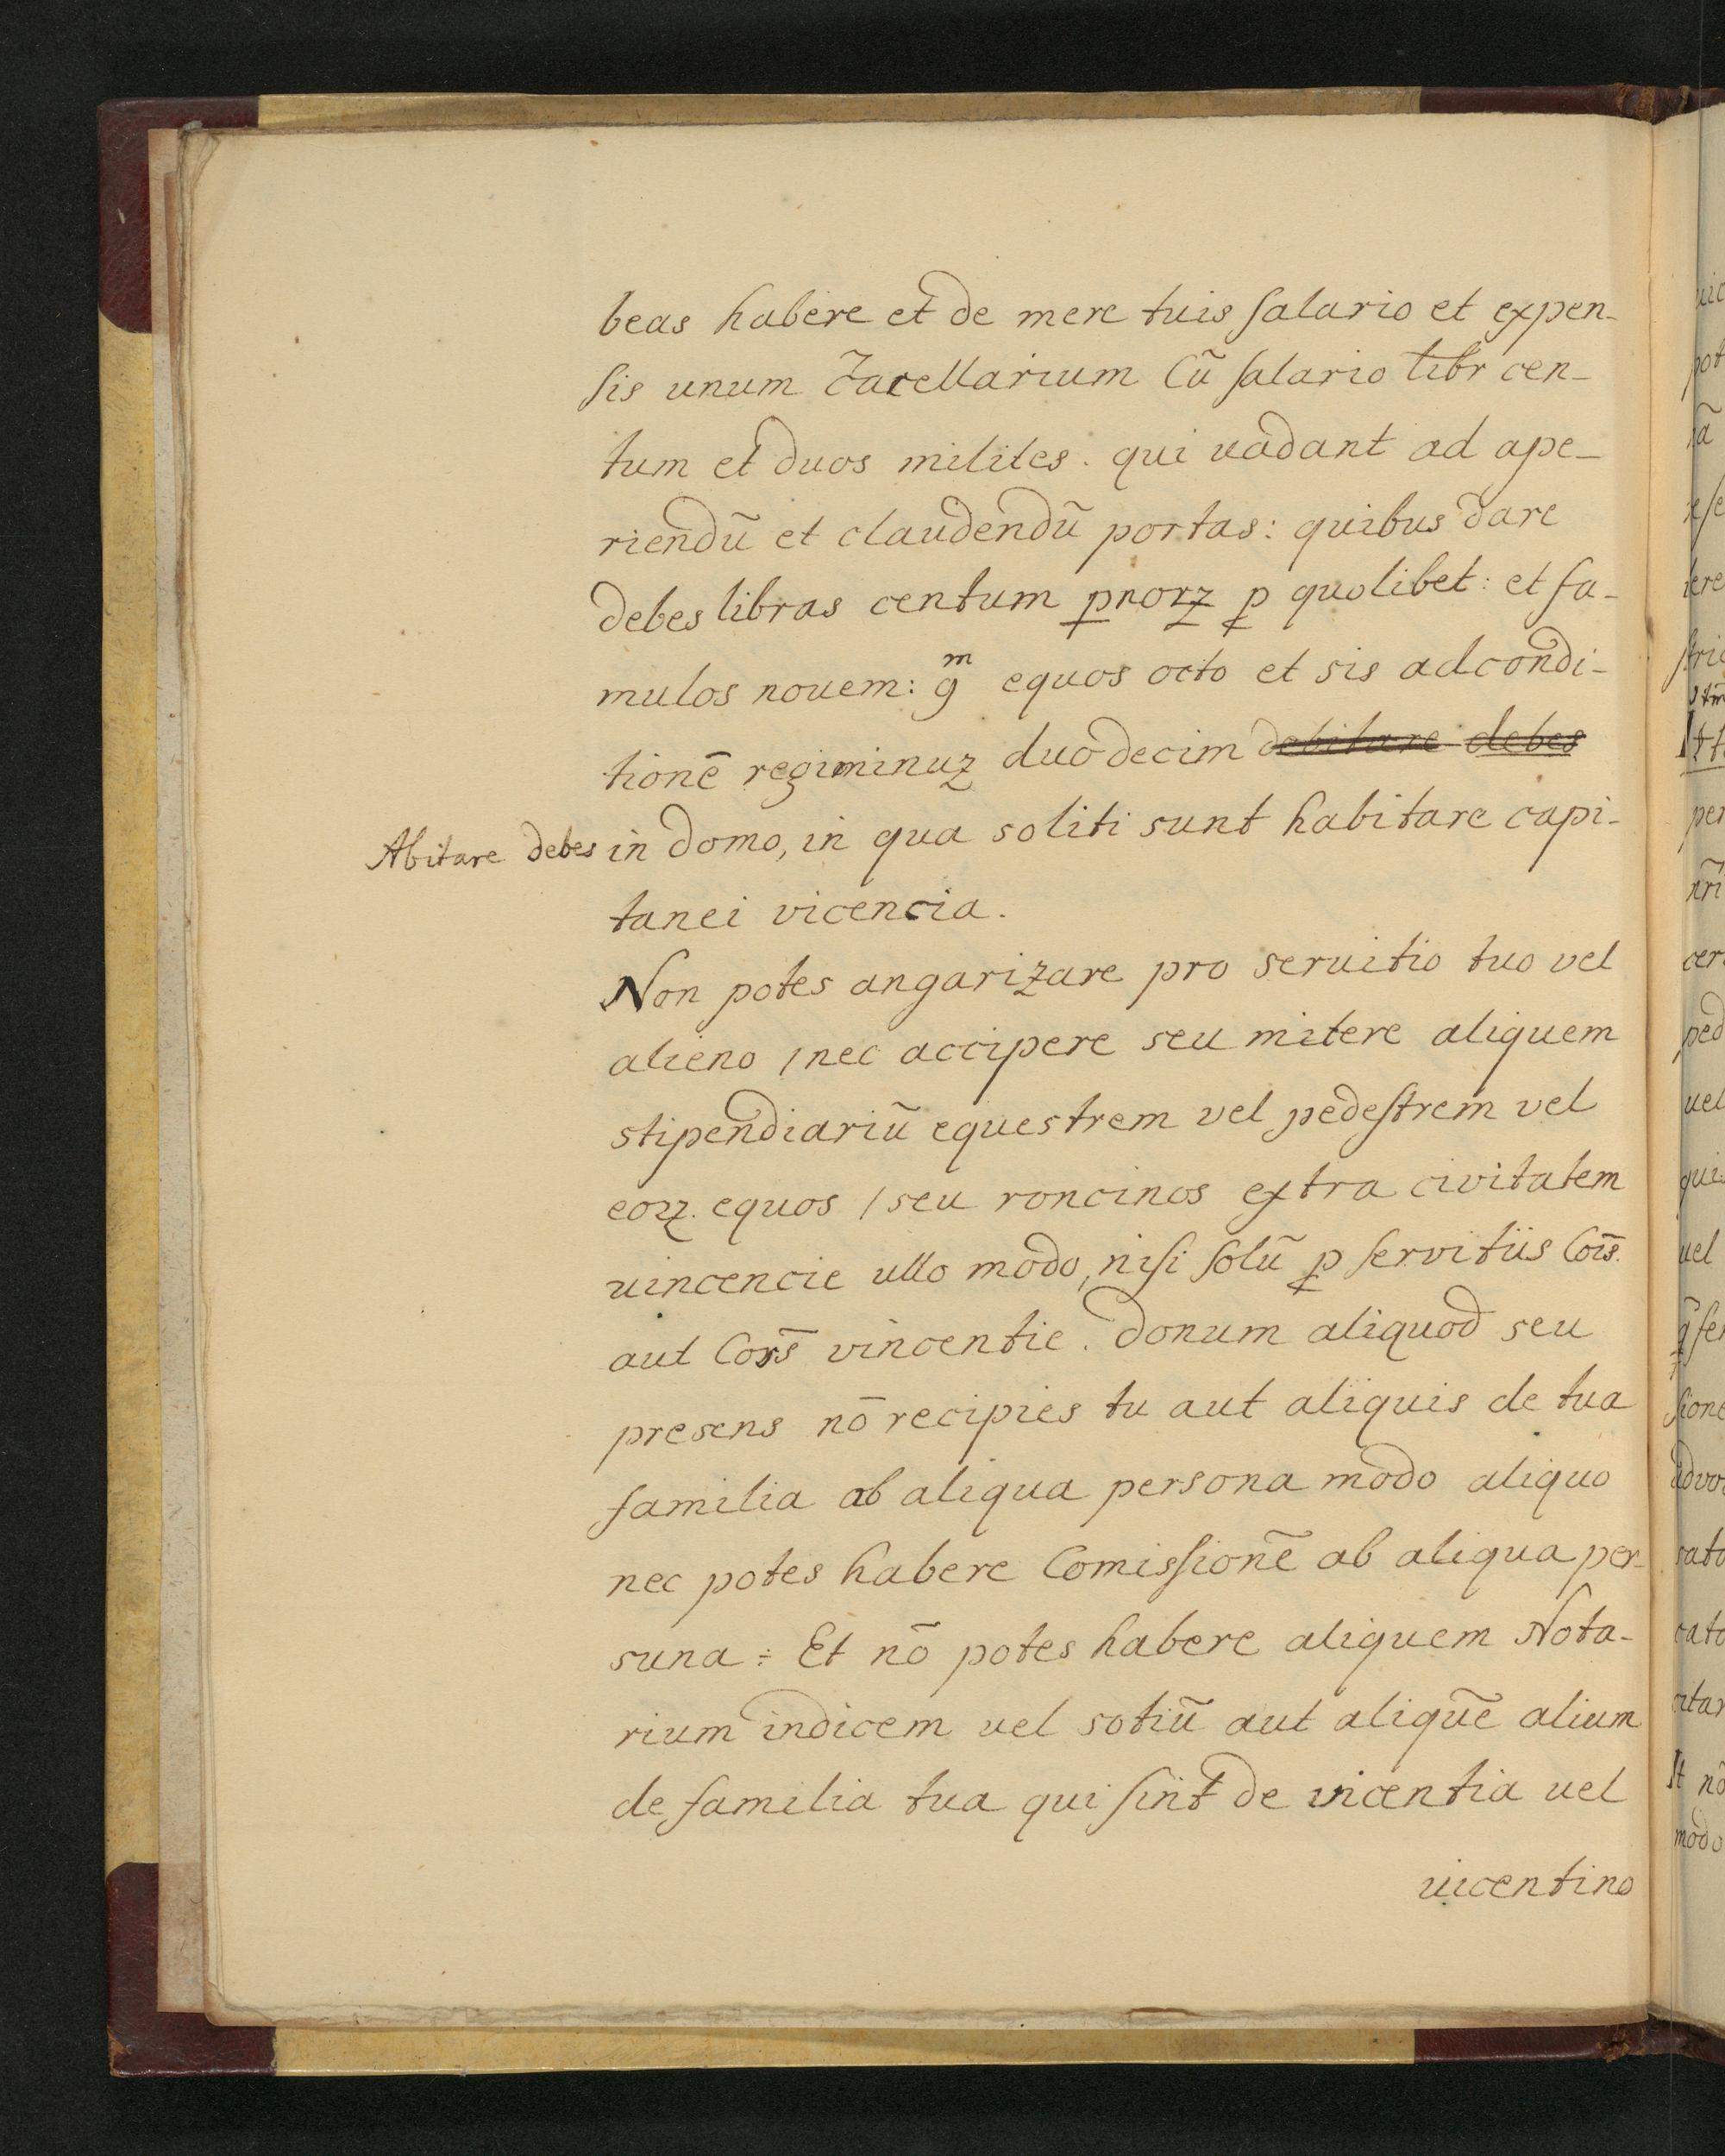 beas habere et de mere tuis salario et expen-
sis unum c̄acellarium Cū salario libr cen-
tum et duos milites. qui uadant ad ape-
riendū et claudendū portas: quibus dare
debes libras centum pnorz p quolibet: et fa-
mulos nouem: gͫ equos octo et sis ad condi-
tionē regiminuz duodecim debitare debes
Abitare debes in domo, in qua soliti sunt habitare capi-
tanei vicencia.
Non potes angarizare pro seruitio tuo vel
alieno / nec accipere seu mitere aliquem
stipendiariū equestrem vel pedestrem vel
eorz. equos / seu roncinos extra civitatem
uincencie ullo modo, nisi solū p servitiis Coīs.
aut Corš vincentie. donum aliquod seu
presens nō recipies tu aut aliquis de tua
familia ab aliqua persona modo aliquo
nec potes habere Comissionē ab aliqua per-
suna: Et nō potes habere aliquem Nota-
rium indicem uel sotiū aut aliquē alium
de familia tua qui sint de vicentia uel
uicentino